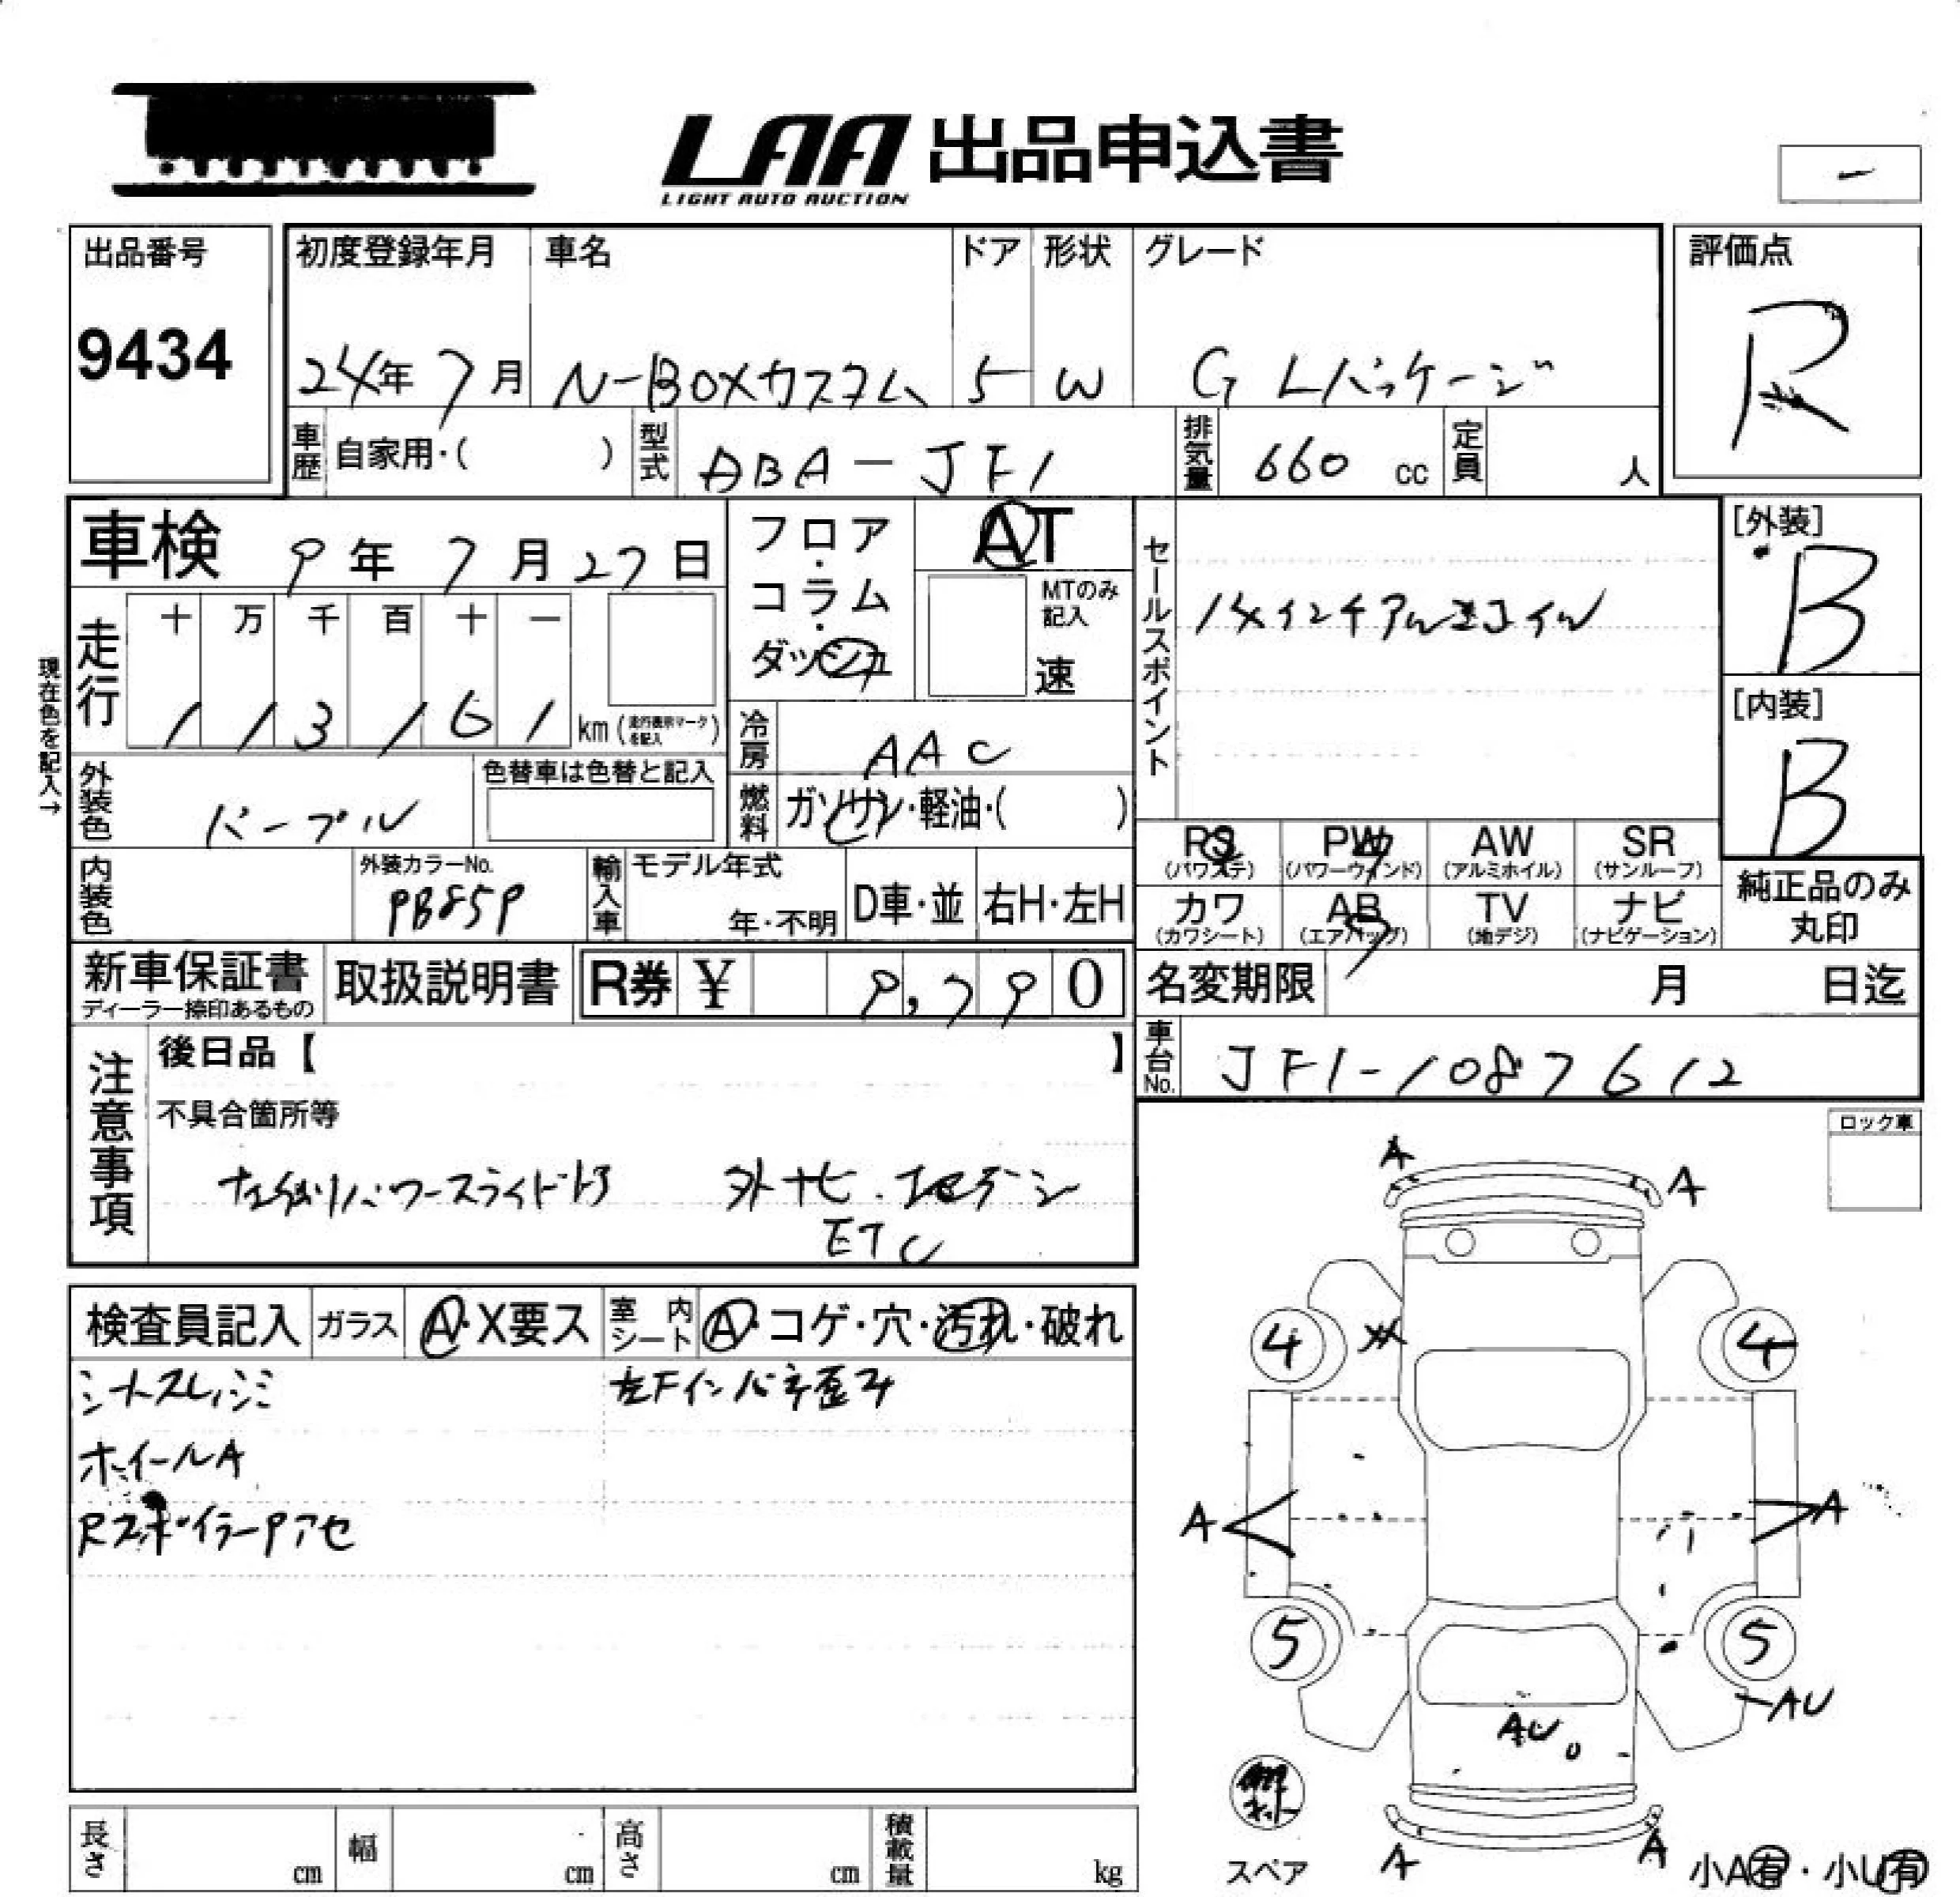 LAA 出品申込書
LIGHT AUTO AUCTION
-
出品番号
9434
初度登録年月
24年 7月
車名
N-BOXカスタム
ドア
5
形状
W
グレード
G Lパッケージ
評価点
R
車歴 自家用・( )
型式 ABA-JF1
排気量 660 cc
定員 人
車検 9年 7月 27日
フロア・コラム・ダッシュ
AT
MTのみ記入
速
セールスポイント
14インチアルミホイル
[外装]
B
[内装]
B
現在色を記入→
走行
十 万 千 百 十 一
1 1 3 1 6 1 km (走行表示マークを記入)
冷房 AAC
外装色 パープル
色替車は色替と記入
燃料 ガソリン・軽油・( )
PS PW AW SR
(パワステ) (パワーウィンド) (アルミホイル) (サンルーフ)
カワ AB TV ナビ
(カワシート) (エアバッグ) (地デジ) (ナビゲーション)
純正品のみ
丸印
内装色
外装カラーNo.
PB85P
輸入車
モデル年式
年・不明
D車・並
右H・左H
新車保証書
ディーラー捺印あるもの
取扱説明書
R券 ¥ 9,790
名変期限 月 日迄
車台No. JF1-1087612
注意事項
後日品【 】
不具合箇所等
左側パワースライドドア 外ナビ・地デジ
ETC
ロック車
検査員記入
ガラス A・X要ス
室内シート A・コゲ・穴・汚れ・破れ
左Fインパネ歪み
ホイールA
RスポイラーPアセ
A A
4 4
A A
5 5
AU
AU
A A
スペア
小A有・小U有
長さ cm
幅 cm
高さ cm
積載量 kg